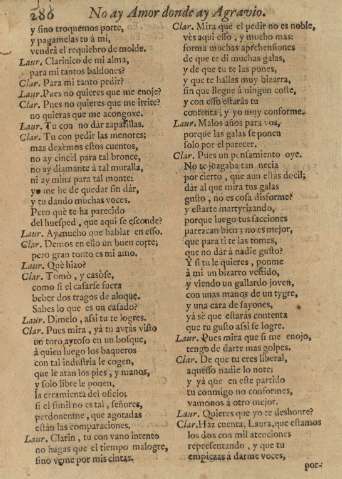 286 No ay Amor donde ay Agravio.
y sino troquemos porte,
y pagamelas tu à mi,
vendrá el requiebro de molde.
Laur. Clarinico de mi alma,
para mi tantos baldones?
Clar. Para mi tanto pedir?
Laur. Pues no quieres que me enoje?
Clar. Pues no quieres que me irrite?
no quieras que me acongoxe.
Laur. Tu con no dár zapatillas.
Clar. Tu con pedir las menores;
mas dexémos estos cuentos,
no ay cincél para tal bronce,
no ay diamante à tal muralla,
ni ay mina para tal monte:
yo me he de quedar sin dár,
y tu dando muchas voces.
Pero què te ha parecido
del huesped, que aqui se esconde?
Laur. Ay mucho que hablar en esso.
Clar. Demos en ello un buen corte;
pero gran tonto es mi amo.
Laur. Què hizo?
Clar. Tomò, y casòse,
como si el casarse fuera
beber dos tragos de aloque.
Sabes lo que es un casado?
Laur. Dimelo, assi tu te logres.
Clar. Pues mira, yà tu avràs visto
un toro ayroso en un bosque,
à quien luego los baqueros
con tal industria le cogen,
que le atan los pies, y manos,
y solo libre le ponen,
la erramienta del oficio;
si el simil no es tal, señores,
perdonenme, que agotadas
están las comparaciones.
Laur. Clarin, tu con vano intento
no hagas que el tiempo malogre,
sino veme por mis cintas.
Clar. Mira que el pedir no es noble,
vès aqui esso, y mucho mas:
forma muchas aprehensiones
de que te dì muchas galas,
y de que tu te las pones,
y que te hallas muy bizarra,
sin que llegue à ningun coste,
y con esso estarás tu
contenta, y yo muy conforme.
Laur. Malos años para vos,
porque las galas se ponen
solo por el parecer.
Clar. Pues un pensamiento oye.
No te juzgaba tan necia
por cierto, que aun estás decil;
dár al que mira tus galas
gusto, no es cosa disforme?
y estarte martyrizando,
porque luego tus facciones
parezcan bien y no es mejor,
que para ti te las tomes,
que no dár à nadie gusto?
Y si tu le quieres, ponme
à mi un bizarro vestido,
y viendo un gallardo joven,
con unas manos de un tygre,
y una cara de sayones,
yà sè que estarás contenta
que tu gusto assi se logre.
Laur. Pues mira que si me enojo,
tengo de darte mas golpes.
Clar. De que tu eres liberal,
aquesso nadie lo note;
y yà que en este partido
tu conmigo no conformes,
vamonos à otro mejor.
Laur. Quieres que yo te deshonre?
Clar. Haz cuenta, Laura, que estamos
los dos con mil atenciones
representando, y que tu
empiezas à darme voces,
por-